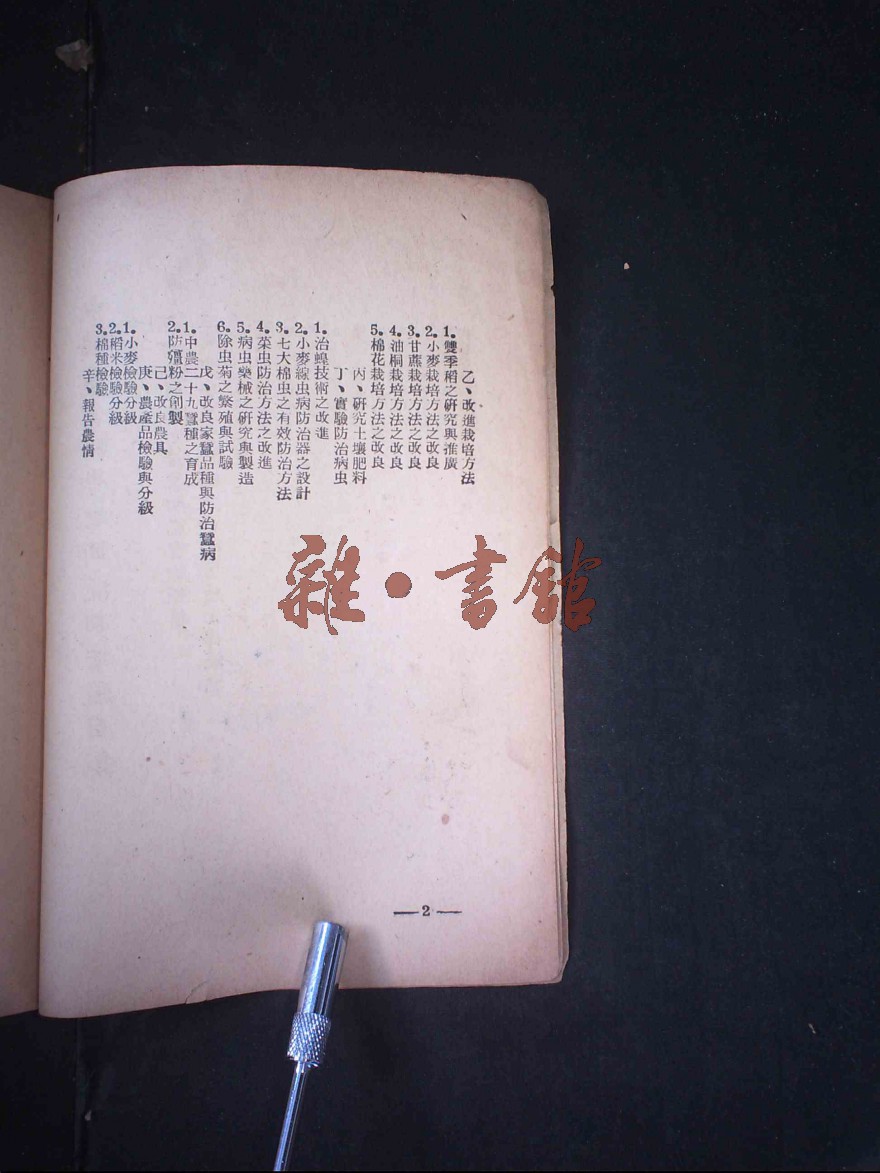 乙、改進栽培方法
1.雙季稻之研究與推廣
2.小麥栽培方法之改良
3.甘蔗栽培方法之改良
4.油桐栽培方法之改良
5.棉花栽培方法之改良
丙、研究土壤肥料
丁、實驗防治病虫
1.治蝗技術之改進
2.小麥線虫病防治器之設計
3.七大棉虫之有效防治方法
4.菜虫防治方法之改進
5.病虫藥械之研究與製造
6.除虫菊之繁殖與試驗
戊、改良家蠶品種與防治蠶病
1.中農二十九蠶種之育成
2.防殭粉之創製
己、改良農具
庚、農產品檢驗與分級
1.小麥檢驗分級
2.稻米檢驗分級
3.棉種檢驗
辛、報告農情
—2—
雜·書館